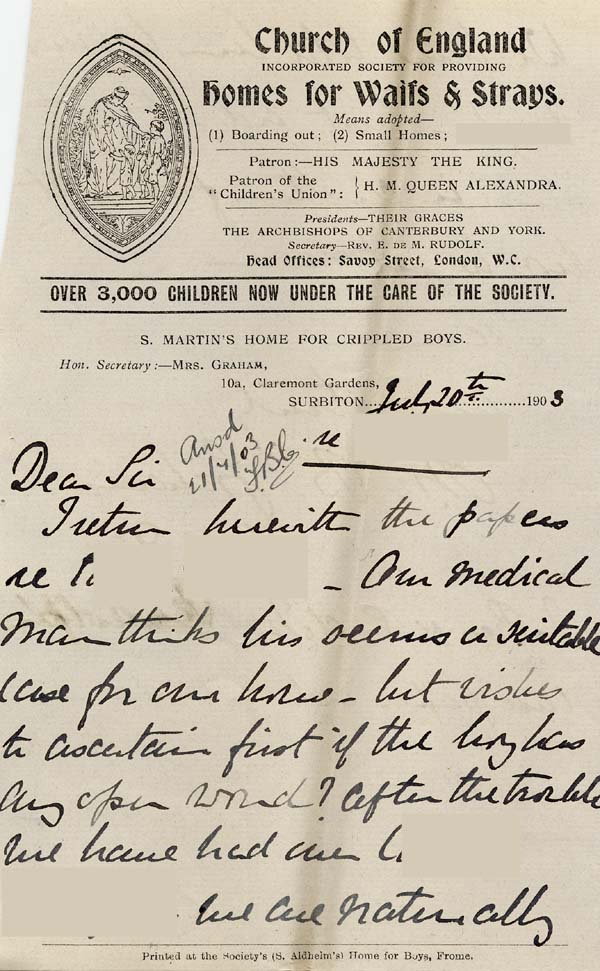 Church of England
INCORPORATED SOCIETY FOR PROVIDING
Homes for Waifs & Strays.
Means adopted—
(1) Boarding out; (2) Small Homes;
Patron:—HIS MAJESTY THE KING.
Patron of the "Children's Union": } H. M. QUEEN ALEXANDRA.
Presidents—THEIR GRACES
THE ARCHBISHOPS OF CANTERBURY AND YORK.
Secretary—REV. E. DE M. RUDOLF.
Head Offices: Savoy Street, London, W.C.
OVER 3,000 CHILDREN NOW UNDER THE CARE OF THE SOCIETY.
S. MARTIN'S HOME FOR CRIPPLED BOYS.
Hon. Secretary:—MRS. GRAHAM,
10a, Claremont Gardens,
SURBITON... July 20th ...1903
Ansd
21/7/03
re
Dear Sir
I return herewith the papers
re
– Our medical
man thinks his seems a suitable
case for our home – but wishes
to ascertain first if the boy has
any open wound? After the trouble
we have had over
we are naturally
Printed at the Society's (S. Aldhelm's) Home for Boys, Frome.